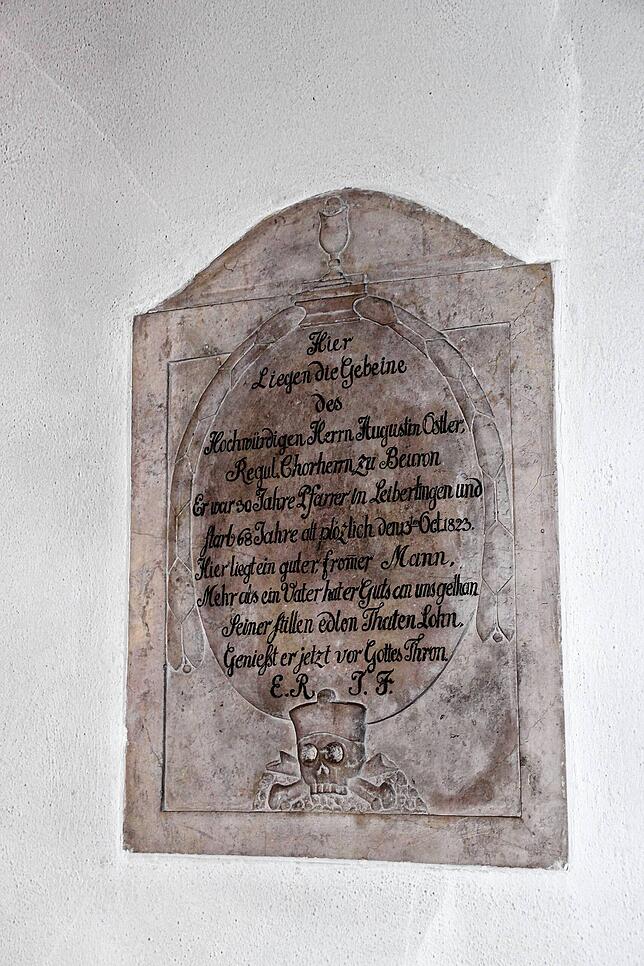 Hier
Liegen die Gebeine
des
Hochwürdigen Herrn Augustin Ostler,
Regul. Chorherrn zu Beuron
Er war 30 Jahre Pfarrer in Leibertingen und
starb 68 Jahre alt plözlich den 13ten Oct. 1823.
Hier liegt ein guter from̅er Mann,
Mehr als ein Vater hat er Guts an uns gethan
Seiner stillen edlon Thaten Lohn,
Genießt er jetzt vor Gottes Thron.
E. R. I. F.